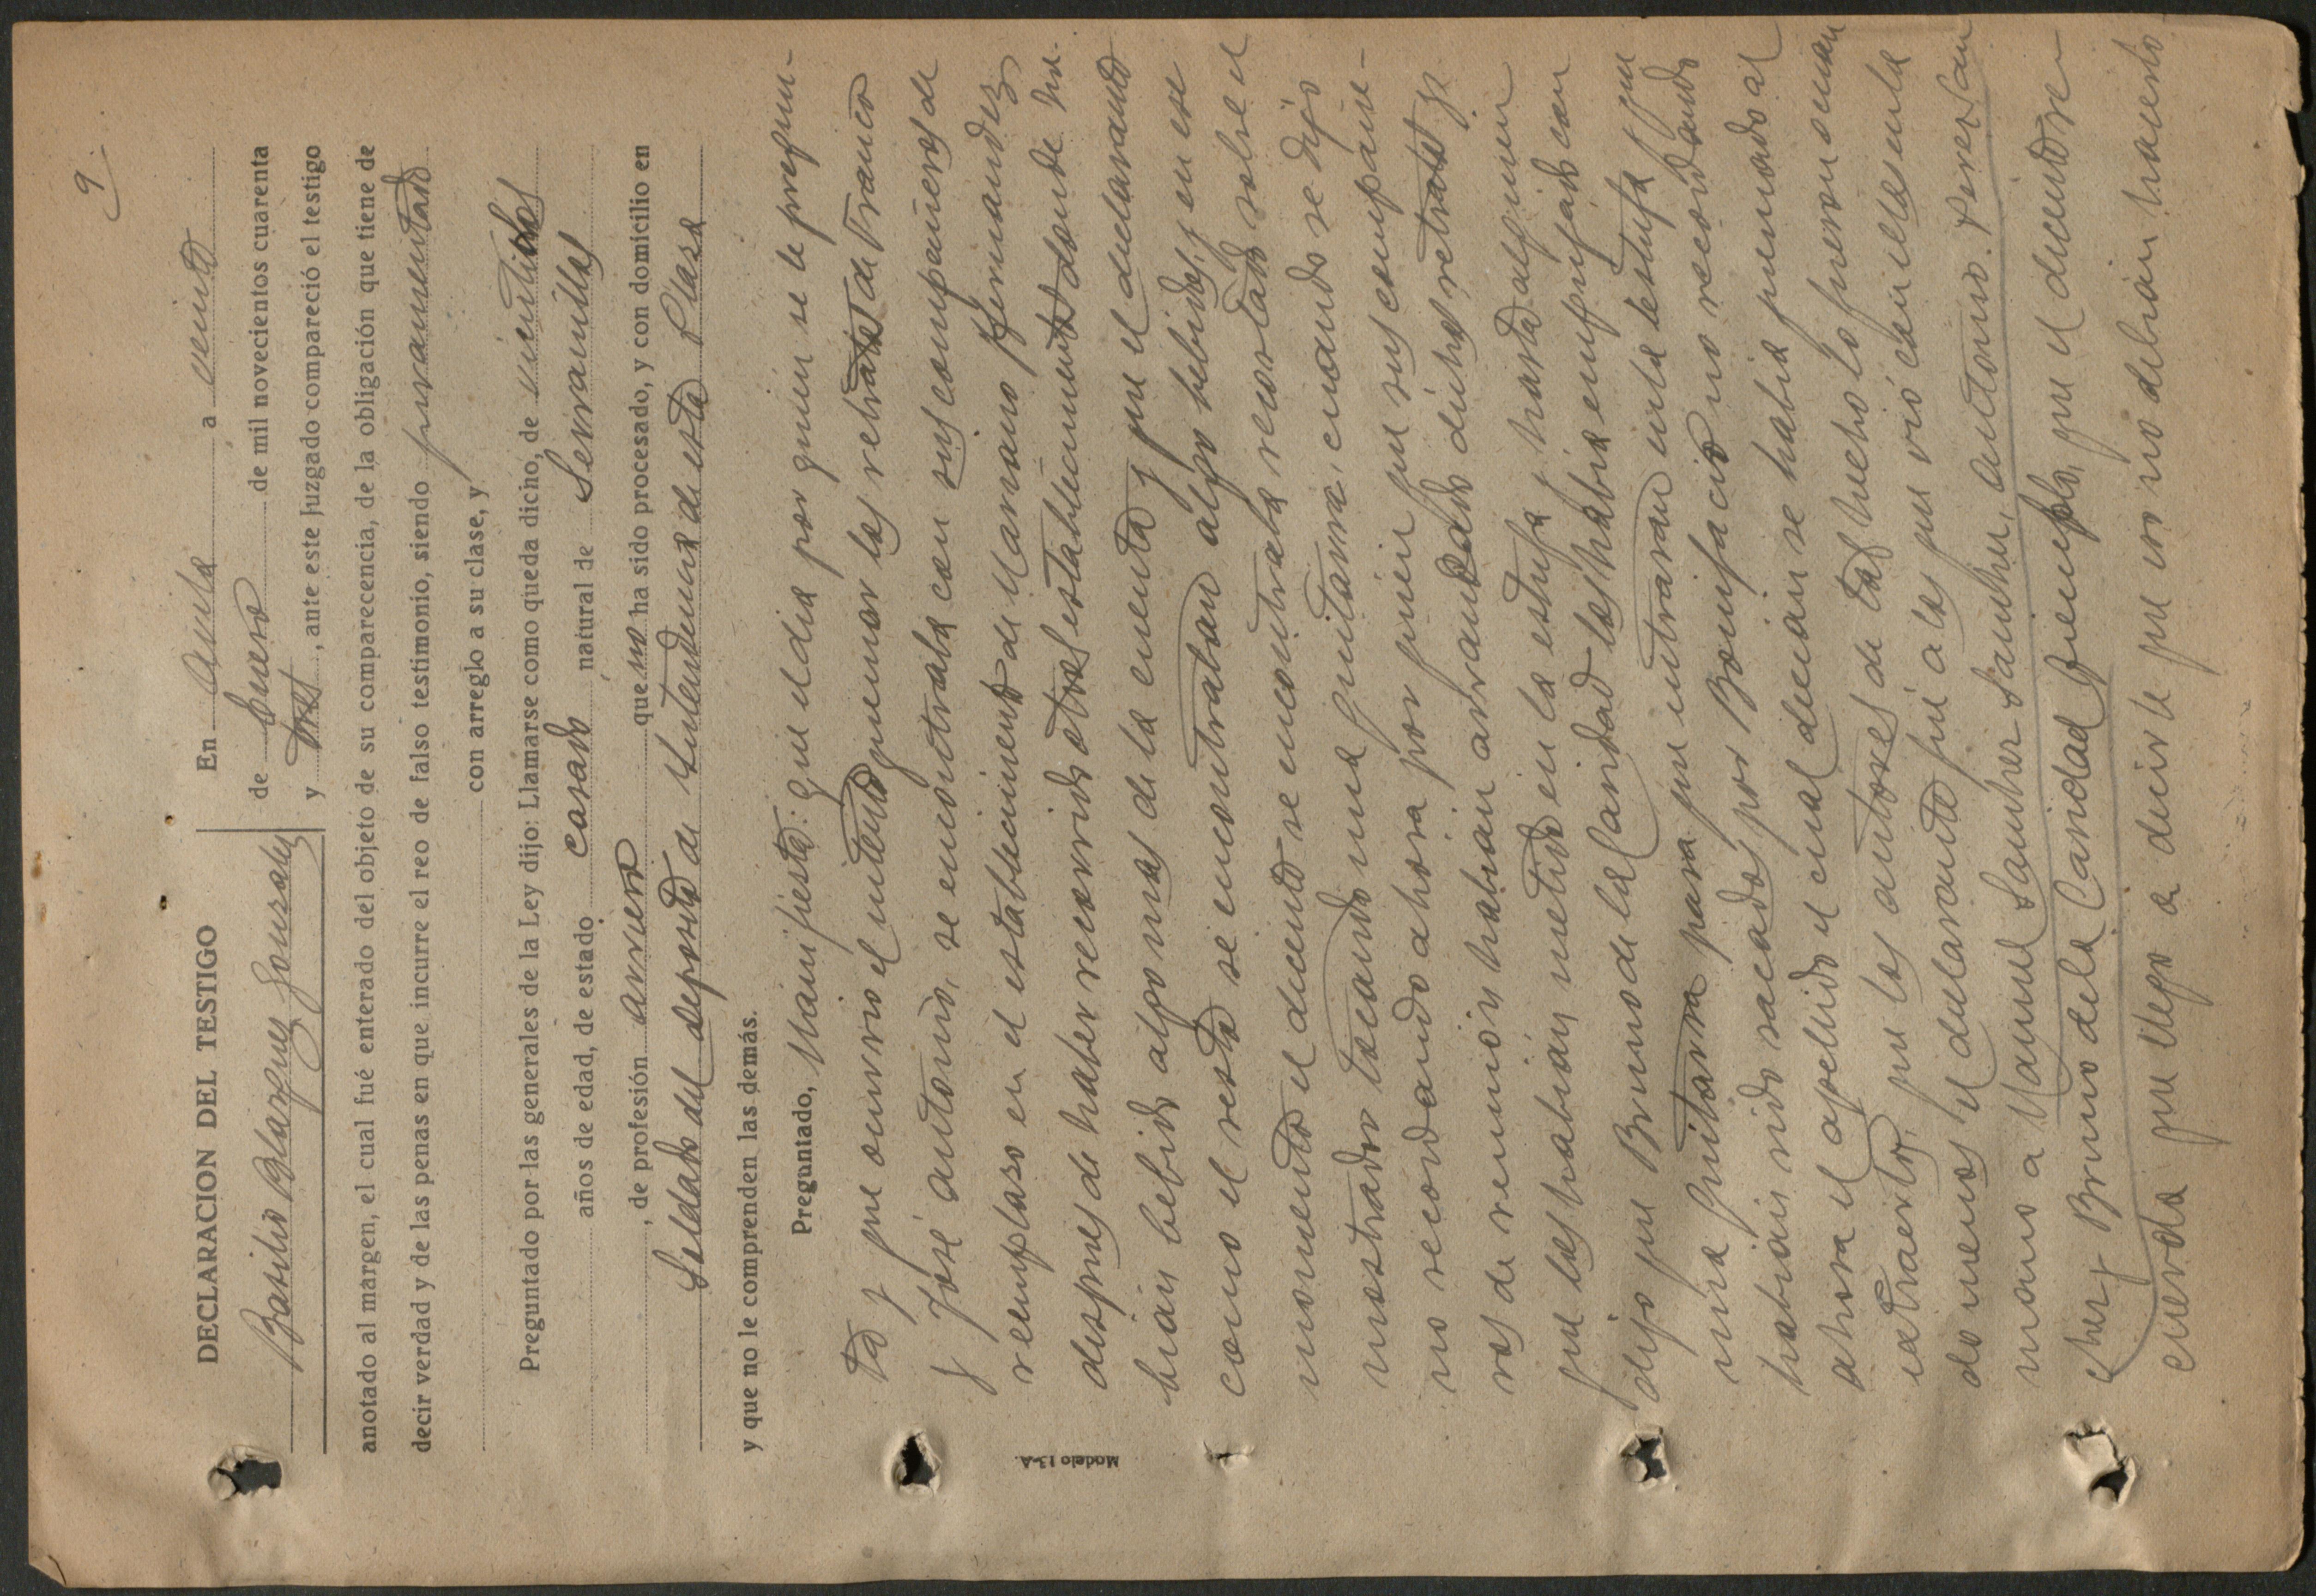 9.
DECLARACION DEL TESTIGO
Basilio Blazquez Gonzalez
En Avila a veinte
de Enero de mil novecientos cuarenta
y tres, ante este Juzgado compareció el testigo
anotado al margen, el cual fué enterado del objeto de su comparecencia, de la obligación que tiene de
decir verdad y de las penas en que incurre el reo de falso testimonio, siendo juramentado
con arreglo a su clase, y
Preguntado por las generales de la Ley dijo: Llamarse como queda dicho, de veintidos
años de edad, de estado casado natural de Serranillos
, de profesión arriero que no ha sido procesado, y con domicilio en
Soldado del deposito de Intendencia de esta Plaza
y que no le comprenden las demás.
Preguntado, Manifiesta: Que el dia por quien se le pregun-
ta y que ocurrio el intento quemar los retratos de Franco
y José Antonio, se encontraba con sus compañeros de
reemplazo en el establecimiento de Mariano Hernandez
despues de haber recorrido otros establecimientos donde ha-
bian bebido algo mas de la cuenta y que el declarando
como el resto se encontraban algo bebidos, y en ese
momento el dicente se encontraba recostado sobre el
mostrador tocando una guitarra, cuando se dijo
no recordando ahora por quien que sus compañe-
ros de reunión habian arrancado dichos retratos y
que los habian metido en la estufa y hasta alguien
dijo que Bruno de la Caridad los habia empujado con
una guitarra para que entraran en la estufa y que
habian sido sacados por Bonifacio no recordando
ahora el apellido el cual decian se habia quemado al
extraerlos, que los autores de tal hecho lo fueron o cuan
do menos el declarante fué a los que vió con ellos en la
mano a Manuel Sanchez Sanchez, Antonio Perez San
chez y Bruno de la Caridad Jimenez, que el dicente re
cuerda que llego a decirle que eso no debian hacerlo
Modelo 13-A